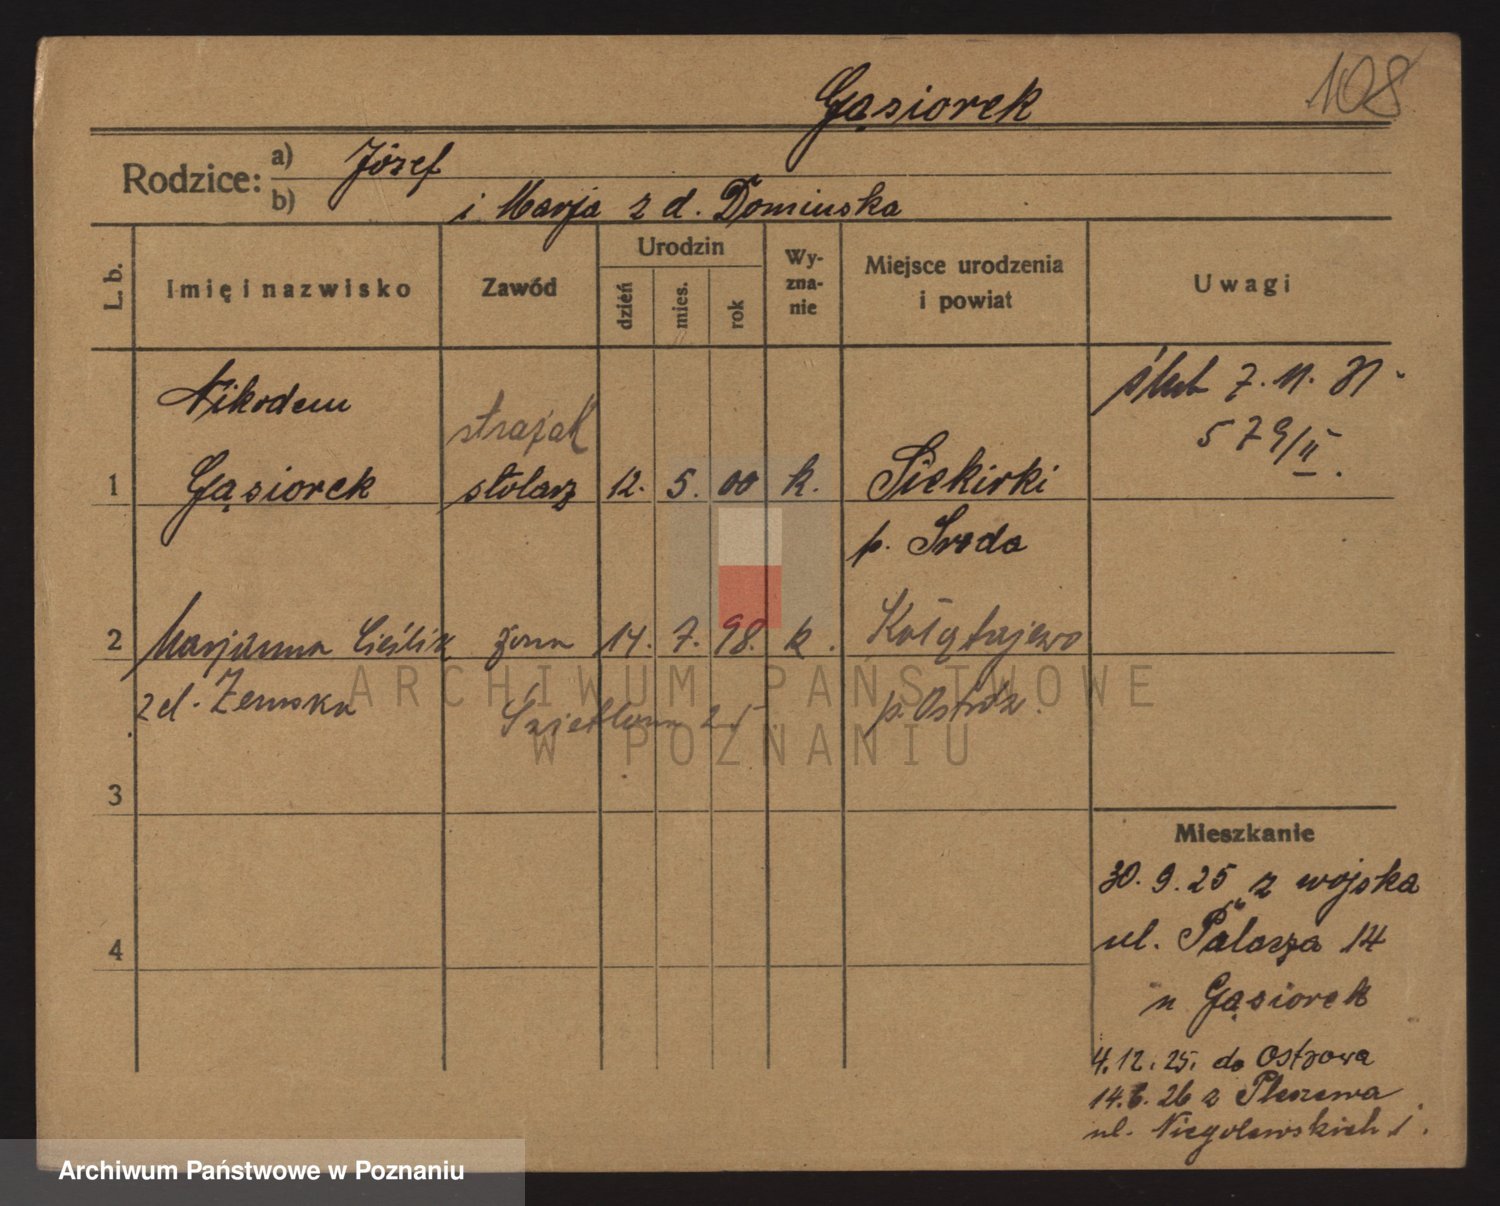 108
Gąsiorek
Rodzice: a) Józef
b) i Marja z d. Domińska
L. b. Imię i nazwisko Zawód Urodzin dzień mies. rok Wyznanie Miejsce urodzenia i powiat Uwagi
Nikodem strażak ślub 7. 11. 31
579/II.
1 Gąsiorek stolarz 12. 5. 00 k. Siekirki
p. Środa
2 Marjanna Cieślik żona 14. 7. 98. k. Kołątajewo
z d. Zemska 25 p. Ostrów.
3
4
Mieszkanie
30. 9. 25 z wojska
ul. Palacza 14
u Gąsiorek
4. 12. 25. do Ostrowa
14. 6. 26 z Pleszewa
ul. Niegolewskich 1.
ARCHIWUM PAŃSTWOWE
W POZNANIU
Archiwum Państwowe w Poznaniu